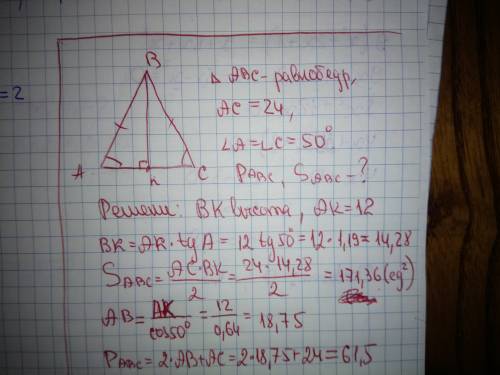 =2
B
A
K
C
Δ ABC - равнобедр,
AC = 24,
∠A = ∠C = 50°
P_ABC, S_ABC - ?
Решени: BK высота, AK = 12
BK = AK · tg A = 12 tg 50° = 12 · 1,19 = 14,28
S_ABC = AC · BK / 2 = 24 · 14,28 / 2 = 171,36 (ед²)
AB = AK / cos 50° = 12 / 0,64 = 18,75
P_ABC = 2 · AB + AC = 2 · 18,75 + 24 = 61,5